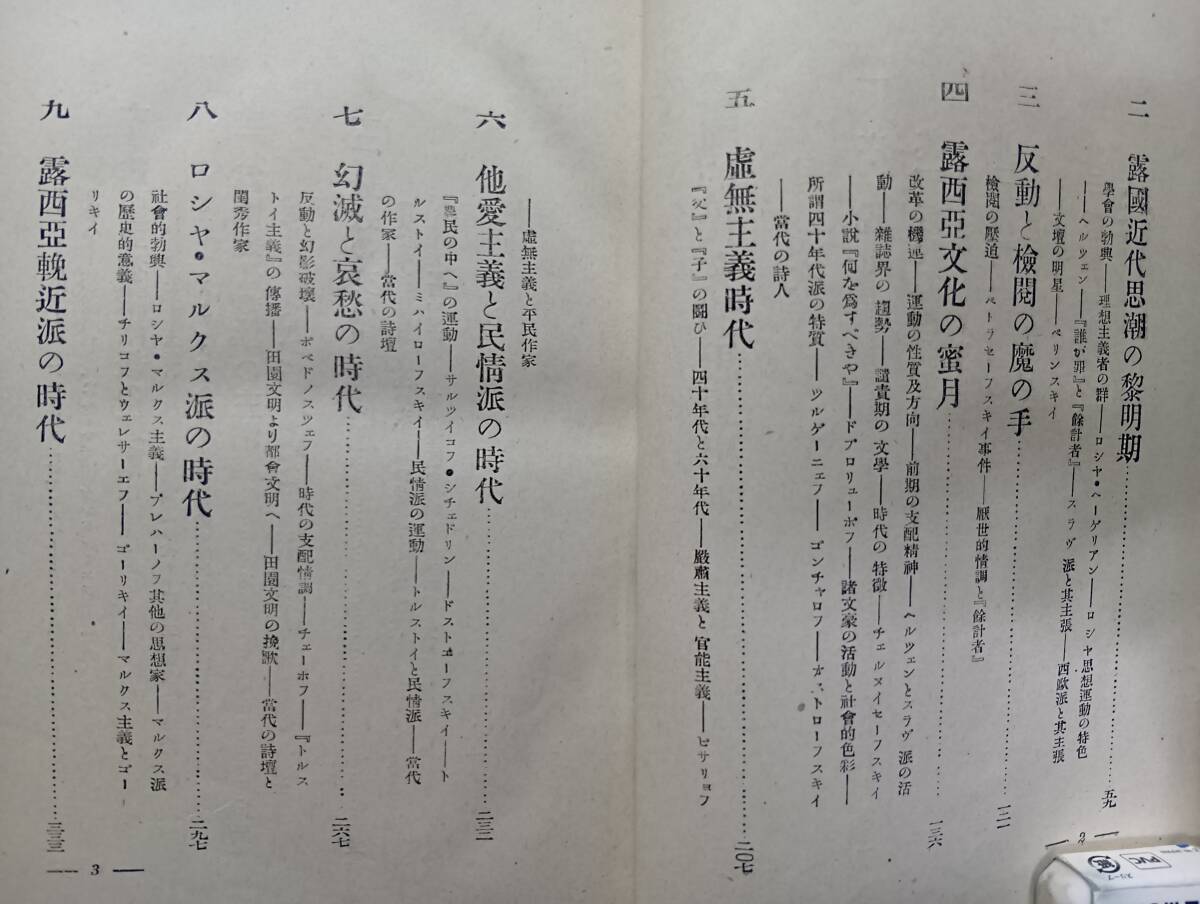 二 露國近代思潮の黎明期……五九
學會の勃興——理想主義者の群——ロシヤ・ヘーゲリアン——ロシヤ思想運動の特色
——ヘルツェン——『誰が罪』と『餘計者』——スラヴ派と其主張——西歐派と其主張
——文壇の明星——ベリンスキイ
三 反動と檢閲の魔の手……一二一
檢閲の壓迫——ペトラセーフスキイ事件——厭世的情調と『餘計者』
四 露西亞文化の蜜月……一三六
改革の機運——運動の性質及方向——前期の支配精神——ヘルツェンとスラヴ派の活
動——雜誌界の趨勢——譴責期の文學——時代の特徴——チェルヌイセーフスキイ
——小說『何を爲すべきや』——ドブロリューボフ——諸文豪の活動と社會的色彩——
所謂四十年代派の特質——ツルゲーニェフ——ゴンチャロフ——オストローフスキイ
——當代の詩人
五 虛無主義時代……二〇七
『父』と『子』の鬪ひ——四十年代と六十年代——嚴肅主義と官能主義——ピサリョフ
2
——虛無主義と平民作家
六 他愛主義と民情派の時代……二三二
『農民の中へ』の運動——サルツイコフ・シチェドリン——ドストエーフスキイ——ト
ルストイ——ミハイローフスキイ——民情派の運動——トルストイと民情派——當代
の作家——當代の詩壇
七 幻滅と哀愁の時代……二六七
反動と幻影破壞——ポベドノスツェフ——時代の支配情調——チェーホフ——『トルス
トイ主義』の傳播——田園文明より都會文明へ——田園文明の挽歌——當代の詩壇と
閨秀作家
八 ロシヤ・マルクス派の時代……二九七
社會的勃興——ロシヤ・マルクス主義——プレハーノフ其他の思想家——マルクス派
の歷史的意義——チリコフとウェレサーエフ——ゴーリキイ——マルクス主義とゴー
リキイ
九 露西亞輓近派の時代……三三三
3
PVC